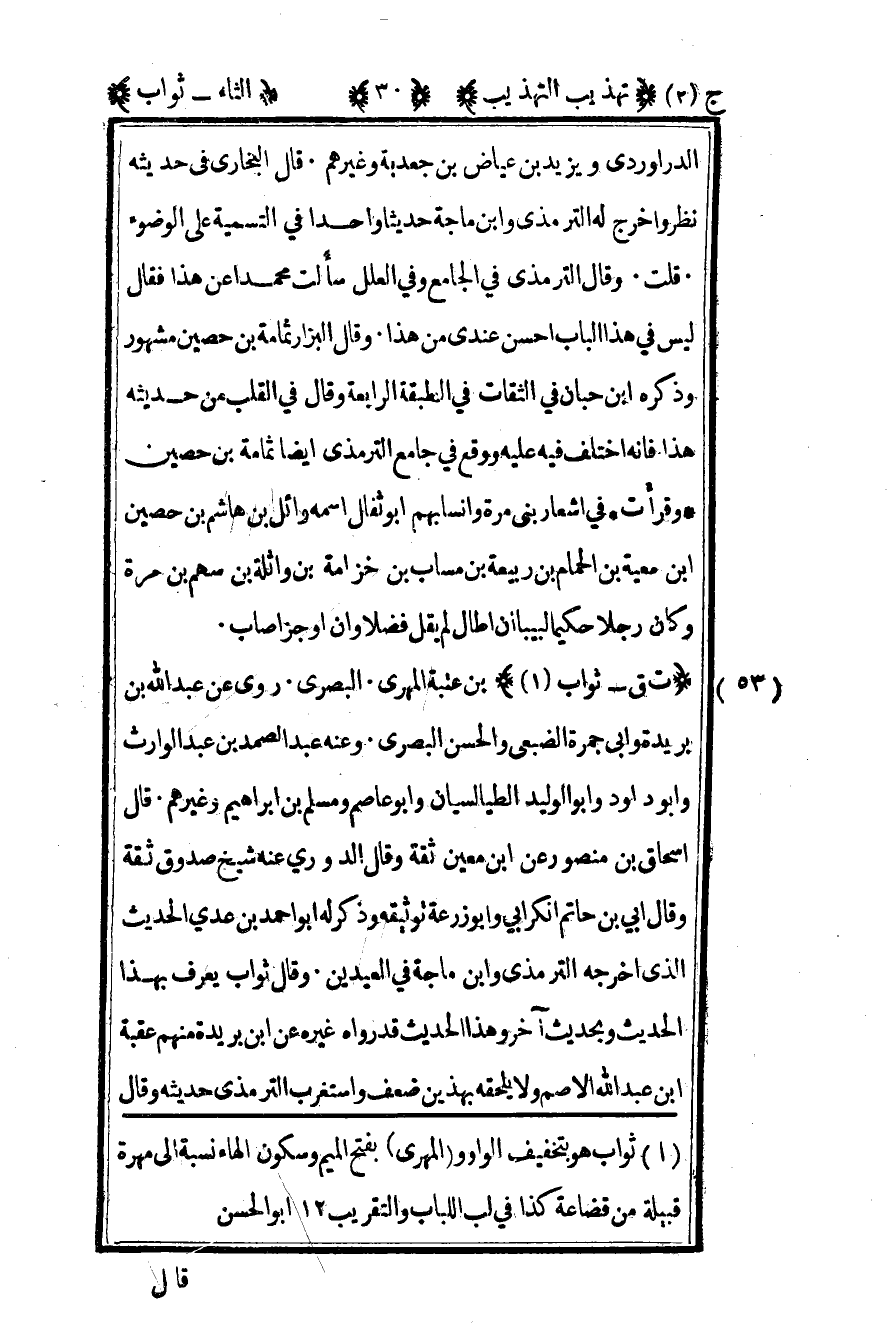 ج (٢) ﴿ تهذيب التهذيب ﴾ ﴿ ٣٠ ﴾ ﴿ الثاء ــ ثواب ﴾
الدراوردى ويزيد بن عياض بن جعدبة وغيرهم · قال البخارى فى حديثه
نظر واخرج له الترمذى وابن ماجة حديثا واحدا في التسمية على الوضوء
· قلت · وقال الترمذى في الجامع وفي العلل سألت محمدا عن هذا فقال
ليس في هذا الباب احسن عندى من هذا · وقال البزار ثمامة بن حصين مشهور
وذكره ابن حبان في الثقات في الطبقة الرابعة وقال في القلب من حديثه
هذا فانه اختلف فيه عليه ووقع في جامع الترمذى ايضا ثمامة بن حصين
*وقرأت* في اشعار بنى مرة وانسابهم ابو ثفال اسمه وائل بن هاشم بن حصين
ابن معية بن الحمام بن ربيعة بن مساب بن خزامة بن واثلة بن سهم بن مرة
وكان رجلا حكيما لبيبا ان اطال لم يقل فضلا وان اوجز اصاب ·
﴿ ت ق ــ ثواب (١) ﴾ بن عتبة المهرى · البصرى · روى عن عبد الله بن (٥٣)
بريدة وابي جمرة الضبعى والحسن البصرى · وعنه عبد الصمد بن عبد الوارث
وابو داود وابو الوليد الطيالسيان وابو عاصم ومسلم بن ابراهيم وغيرهم · قال
اسحاق بن منصور عن ابن معين ثقة وقال الدوري عنه شيخ صدوق ثقة
وقال ابي بن حاتم انكر ابي وابو زرعة توثيقه وذكر له ابو احمد بن عدي الحديث
الذى اخرجه الترمذى وابن ماجة في العيدين · وقال ثواب يعرف بهذا
الحديث وبحديث آخر وهذا الحديث قد رواه غيره عن ابن بريدة منهم عقبة
ابن عبد الله الاصم ولا يلحقه بهذين ضعف واستغرب الترمذى حديثه وقال
(١) ثواب هو بتخفيف الواو (المهرى) بفتح الميم وسكون الهاء نسبة الى مهرة
قبيلة من قضاعة كذا في لب اللباب والتقريب ١٢ ابو الحسن
قال